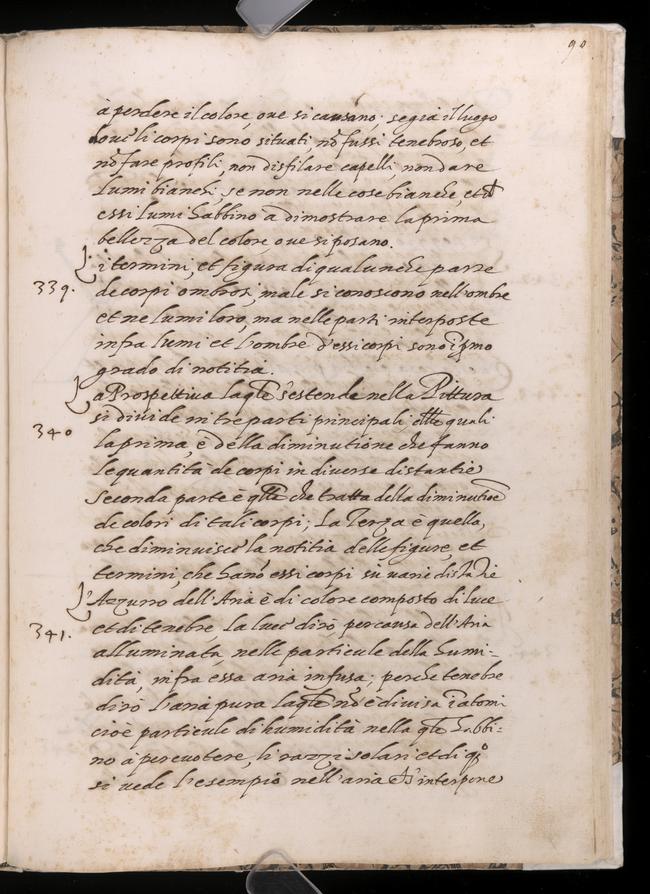 90
à perdere il colore, oue si causano; se gia il luogo
doue li corpi sono situati, nõ fussi tenebroso, et
nõ fare profili, non disfilare capelli, non dare
Lumi bianchi, se non nelle cose bianche, et
essi lumi habbino à dimostrare la prima
bellezza del colore, oue si posano.
339. i termini, et figura di qualunche parte
de corpi ombrosi, male si conoscono nell'ombre
et ne lumi loro, ma nelle parti interposte
infra lumi et l'ombre d'essi corpi sono
grado di notitia.
340 La Prospettiua laqle s'estende nella Pittura
si diuide in tre parti principali delle quali
la prima, è della diminutione che fanno
le quantità de corpi in diuerse distantie
Seconda parte è qlla che tratta della diminutioe
de colori di tali corpi; La Terza è quella,
che diminuisce la notitia delle figure, et
termini, che hano essi corpi su uarie distãtie
341. L'Azzurro dell'Aria è di colore composto di luce
et di tenebre, La luce dirò per causa dell'Aria
alluminata, nelle particule della humi-
dità, infra essa aria infusa; per le tenebre
dirò l'aria pura laqle nõ è diuisa ĩ atomi
cioè particule di humidità nella qle habbi-
no à percuotere, li razzi solari et di qsto
si uede l'esempio nell'aria ch s'interpone